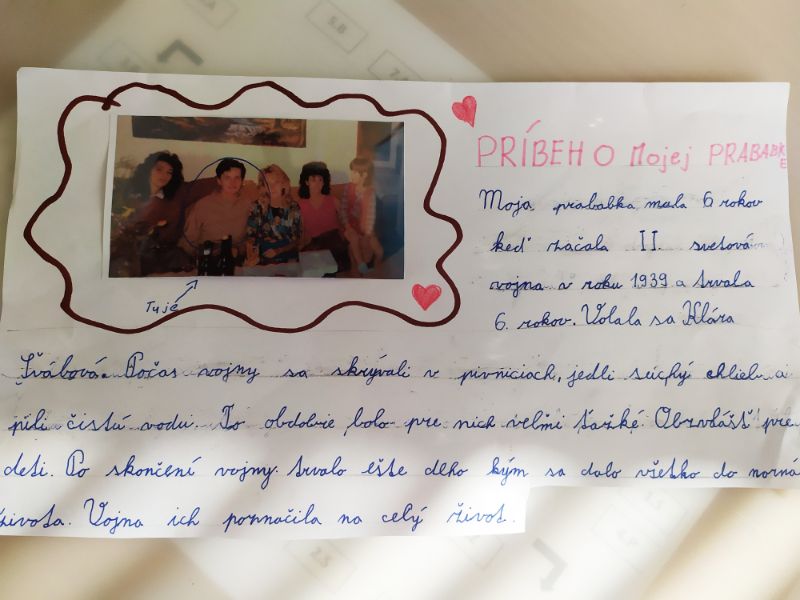 PRÍBEH O Mojej PRABABKE
Moja prababka mala 6 rokov
keď začala II. svetová
vojna v roku 1939 a trvala
6. rokov. Volala sa Klára
Švábová. Počas vojny sa skrývali v pivniciach, jedli suchý chlieb a
pili čistú vodu. To obdobie bolo pre nich veľmi ťažké. Obzvlášť pre
deti. Po skončení vojny trvalo ešte dlho kým sa dalo všetko do normá
života. Vojna ich poznačila na celý život.
Tu je
5.B